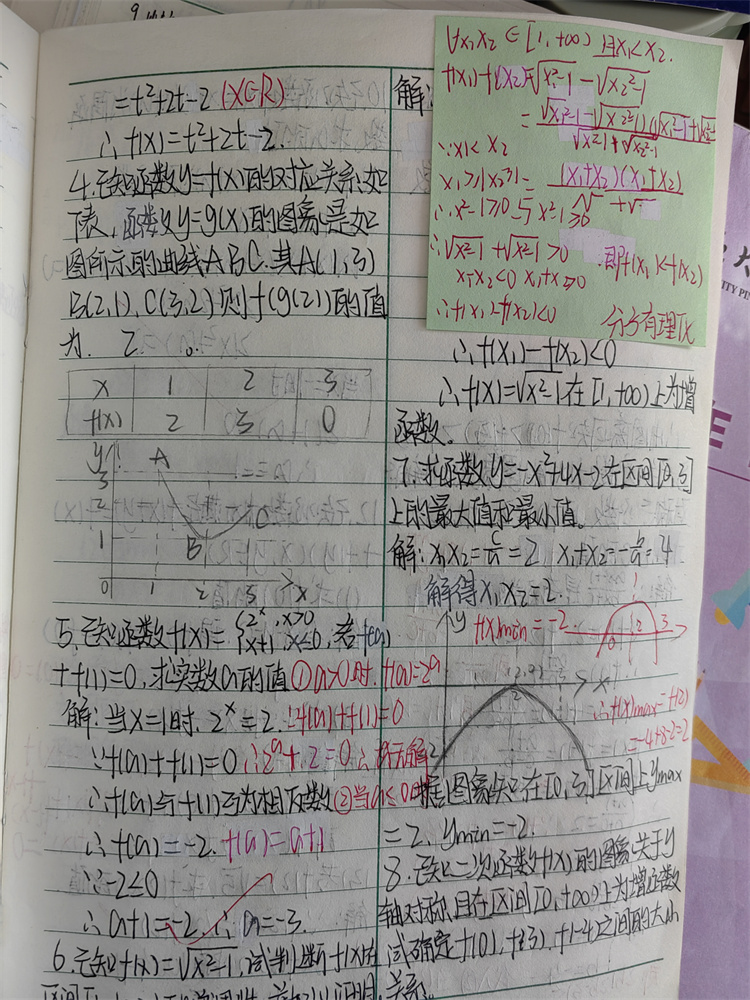 =t²+2t-2 (x∈R)
∴f(x)=t²+2t-2.
4.已知函数y=f(x)的对应关系如
下表,函数y=g(x)的图象是如
图所示的曲线ABC.其A(1,3)
B(2,1),C(3,2)则f(g(2))的值
为 2 。
x 1 2 3
f(x) 2 3 0
y
A
3
2
1
B
C
0 1 2 3 x
5.已知函数f(x)={2^x,x>0
x+1,x≤0,若f(a)
+f(1)=0,求实数a的值 ①a>0时 f(a)=2^a
解:当x=1时,2^x=2. ∵f(a)+f(1)=0
∵f(a)+f(1)=0 ∴2^a+2=0 ∴无解
∴f(a)与f(1)互为相反数 ②当a≤0时
∴f(a)=-2. f(a)=a+1
∵-2≤0
∴a+1=-2 ∴a=-3.
6.已知f(x)=√x²-1,试判断f(x)在
解:
∀x₁x₂∈[1,+∞) 且x₁<x₂.
f(x₁)-f(x₂)=√x₁²-1-√x₂²-1
∵x₁<x₂
∴√x²-1+√x²-1>0 即f(x₁)<f(x₂)
x₁-x₂<0 x₁+x₂>0
∴f(x₁)-f(x₂)<0 分子有理化
∴f(x₁)-f(x₂)<0
∴f(x)=√x²-1在[1,+∞)上为增
函数。
7.求函数y=-x²+4x-2在区间[0,3]
上的最大值和最小值。
解:x₁x₂=c/a=2 x₁+x₂=-b/a=4
解得x₁x₂=2.
y f(x)min=-2
0 2 3
(2,2)
x
2
∴f(x)max=f(2)
=-4+8-2=2
据图象知在[0,3]区间上ymax
=2,ymin=-2.
8.已知二次函数f(x)的图象关于y
轴对称,且在区间[0,+∞)上为增函数
试确定f(0),f(3),f(-4)之间的大小
关系。